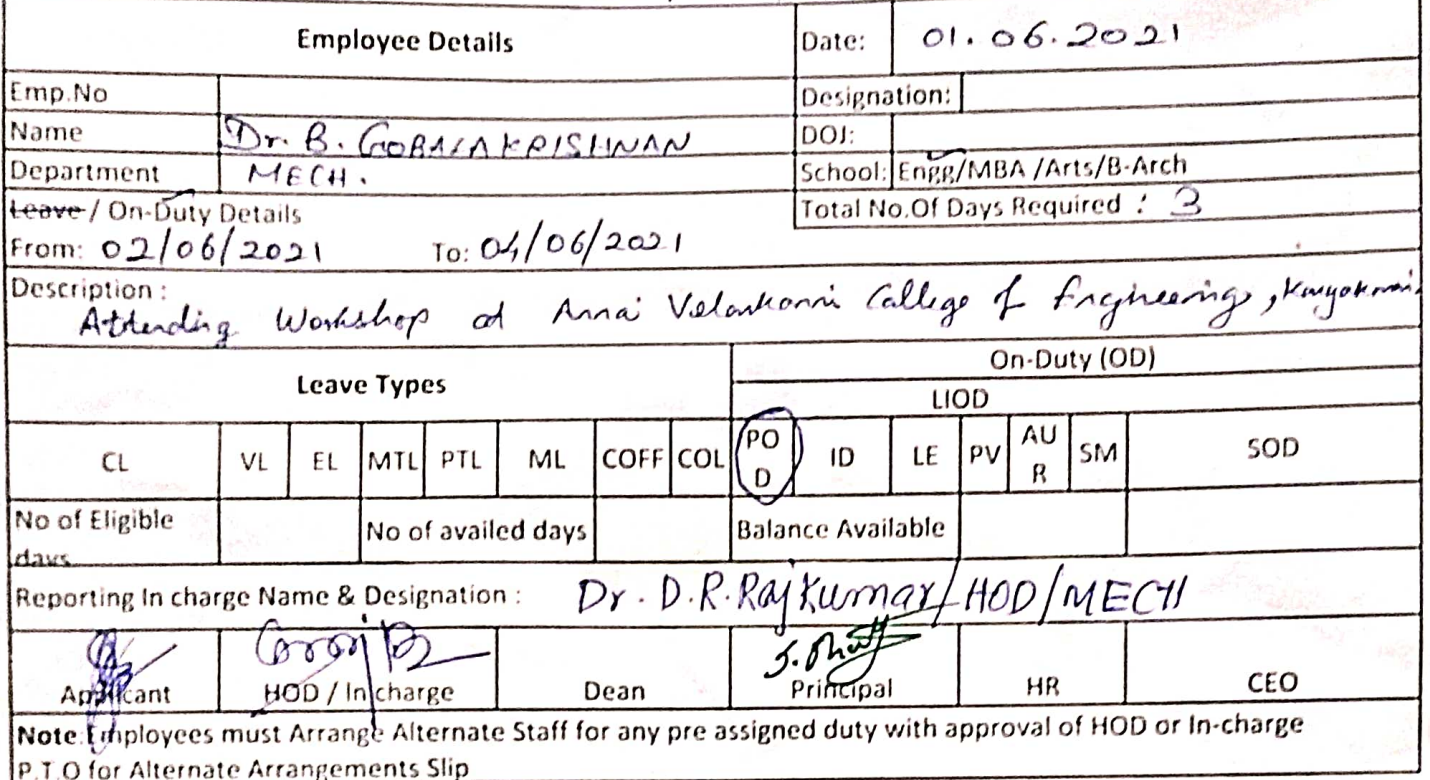 Employee Details Date: 01.06.2021
Emp.No Designation:
Name Dr. B. GOBALAKRISHNAN DOJ:
Department MECH. School: Engg/MBA /Arts/B-Arch
Leave / On-Duty Details Total No.Of Days Required : 3
From: 02/06/2021 To: 04/06/2021
Description :
Attending Workshop at Annai Velankanni College of Engineering,
Leave Types On-Duty (OD)
LIOD
CL VL EL MTL PTL ML COFF COL PO D ID LE PV AU R SM SOD
No of Eligible days No of availed days Balance Available
Reporting In charge Name & Designation : Dr. D.R. Raj Kumar/HOD/MECH
Applicant HOD / In charge Dean Principal HR CEO
Note: Employees must Arrange Alternate Staff for any pre assigned duty with approval of HOD or In-charge
P.T.O for Alternate Arrangements Slip